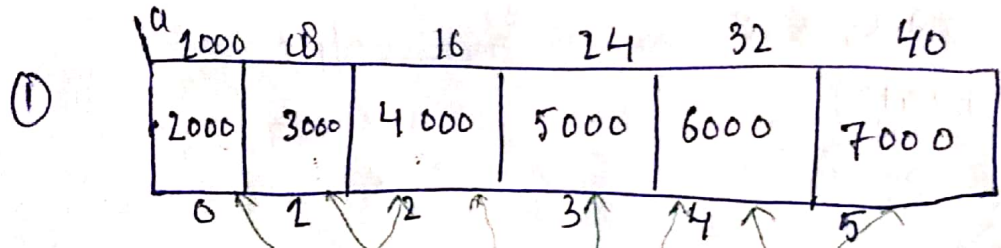 a
1000 08 16 24 32 40
① 2000 3000 4000 5000 6000 7000
0 1 2 3 4 5